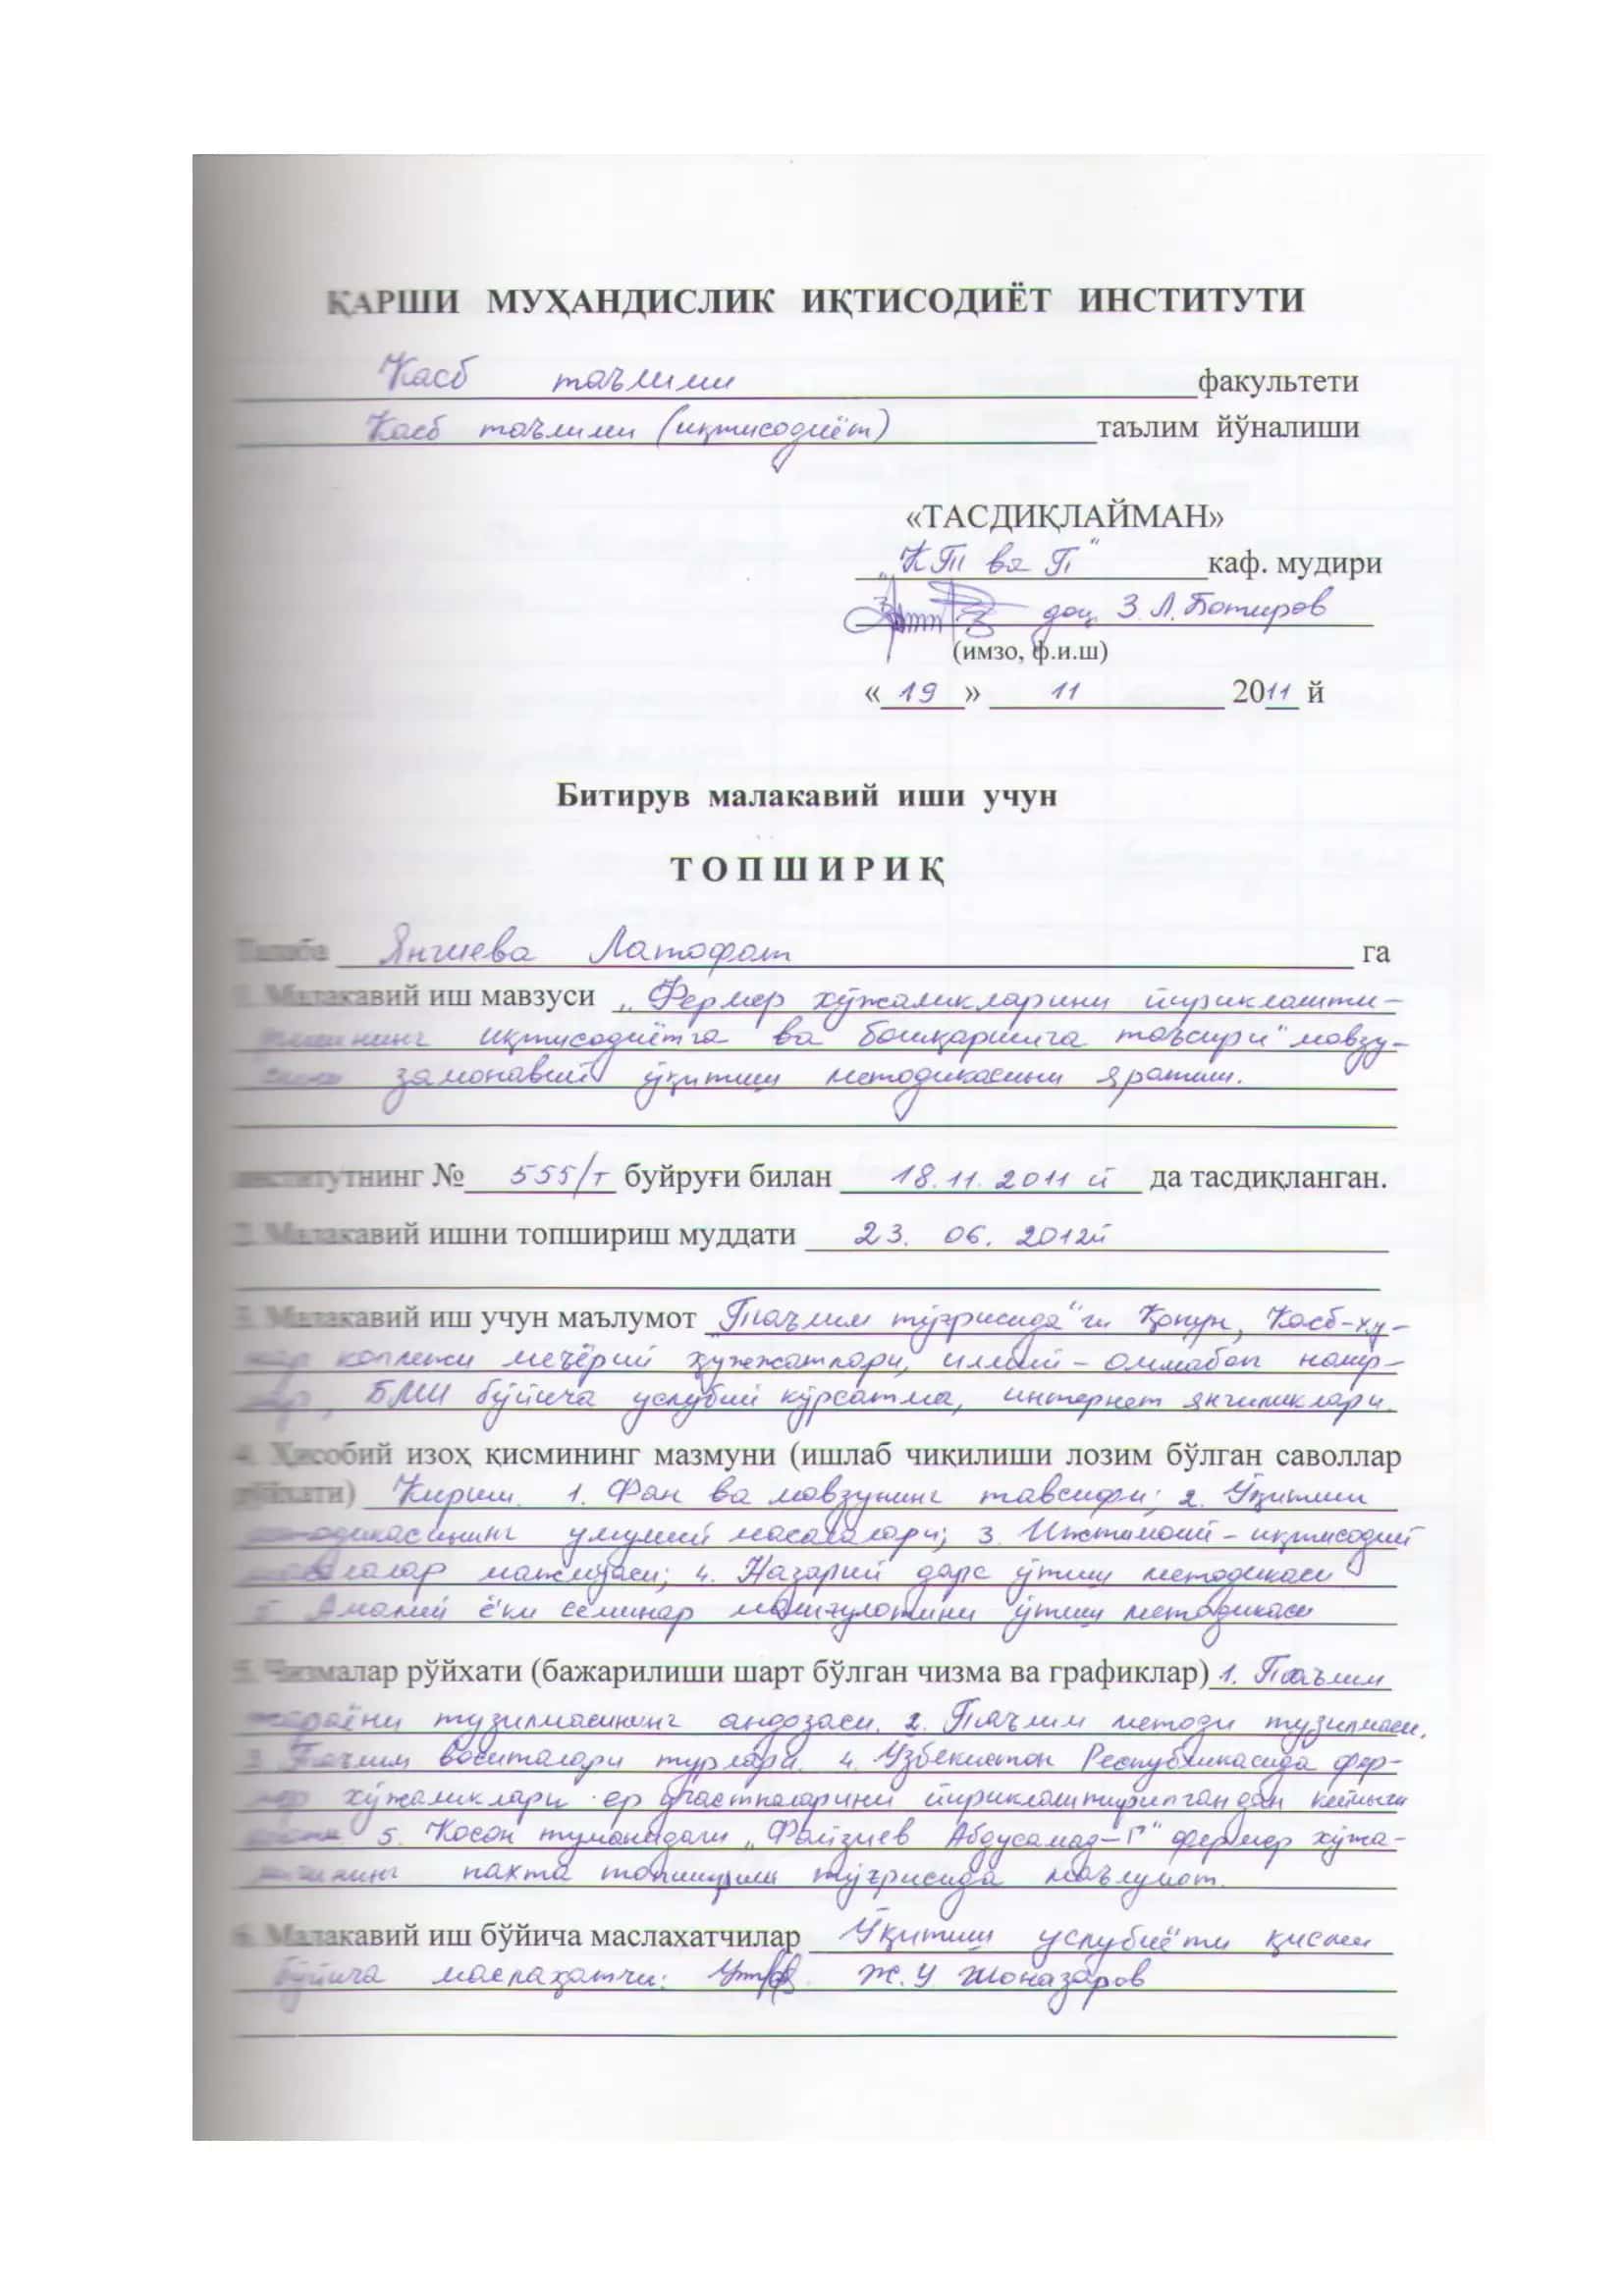 ҚАРШИ МУҲАНДИСЛИК ИҚТИСОДИЁТ ИНСТИТУТИ
Касб таълими факультети
Касб таълими (иқтисодиёт) таълим йўналиши
«ТАСДИҚЛАЙМАН»
„КТ ва П" каф. мудири
доц. З.Л.Ботиров
(имзо, ф.и.ш)
«19» 11 2011 й
Битирув малакавий иши учун
ТОПШИРИҚ
Талаба Янгиева Латофат га
1. Малакавий иш мавзуси „Фермер хўжаликларини йириклашти-
ришининг иқтисодиётга ва бошқаришга таъсири" мавзу-
замонавий ўқитиш методикасини яратиш.
институтнинг № 555/т буйруғи билан 18.11.2011 й да тасдиқланган.
2. Малакавий ишни топшириш муддати 23. 06. 2012й
3. Малакавий иш учун маълумот „Таълим тўғрисида"ги Қонун, Касб-ҳу-
нар коллежи меъёрий ҳужжатлари, илмий-оммабоп нашр-
лар, БМИ бўйича услубий кўрсатма, интернет янгиликлари.
4. Ҳисобий изоҳ қисмининг мазмуни (ишлаб чиқилиши лозим бўлган саволлар
рўйхати) Кириш. 1. Фан ва мавзунинг тавсифи; 2. Ўқитиш
методикасининг умумий масалалари; 3. Ижтимоий-иқтисодий
масалалар мажмуаси; 4. Назарий дарс ўтиш методикаси
5. Амалий ёки семинар машғулотини ўтиш методикаси
5. Чизмалар рўйхати (бажарилиши шарт бўлган чизма ва графиклар) 1. Таълим
жараёни тузилмасининг андозаси. 2. Таълим методи тузилмаси.
3. Таълим воситалари турлари. 4. Ўзбекистон Республикасида фер-
мер хўжаликлари ер участкаларини йириклаштирилгандан кейинги
5. Косон туманидаги „Файзиев Абдусамад-Г" фермер хўжа-
лигининг пахта топшириш тўғрисида маълумот.
6. Малакавий иш бўйича маслахатчилар Ўқитиш услубиёти қисми
бўйича маслаҳатчи: Ж.У Жоназаров